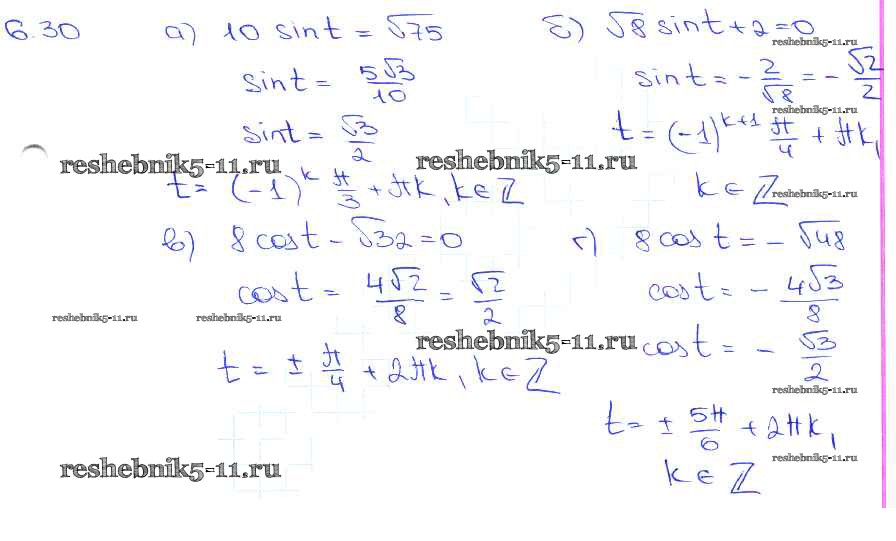 6.30
а) 10 sin t = √75
sin t = 5√3/10
sin t = √3/2
t = (-1)^k π/3 + πk, k ∈ ℤ
б) √8 sin t + 2 = 0
sin t = - 2/√8 = - √2/2
t = (-1)^(k+1) π/4 + πk,
k ∈ ℤ
в) 8 cos t - √32 = 0
cos t = 4√2/8 = √2/2
t = ± π/4 + 2πk, k ∈ ℤ
г) 8 cos t = - √48
cos t = - 4√3/8
cos t = - √3/2
t = ± 5π/6 + 2πk,
k ∈ ℤ
reshebnik5-11.ru
reshebnik5-11.ru
reshebnik5-11.ru
reshebnik5-11.ru
reshebnik5-11.ru
reshebnik5-11.ru
reshebnik5-11.ru
reshebnik5-11.ru
reshebnik5-11.ru
reshebnik5-11.ru
reshebnik5-11.ru